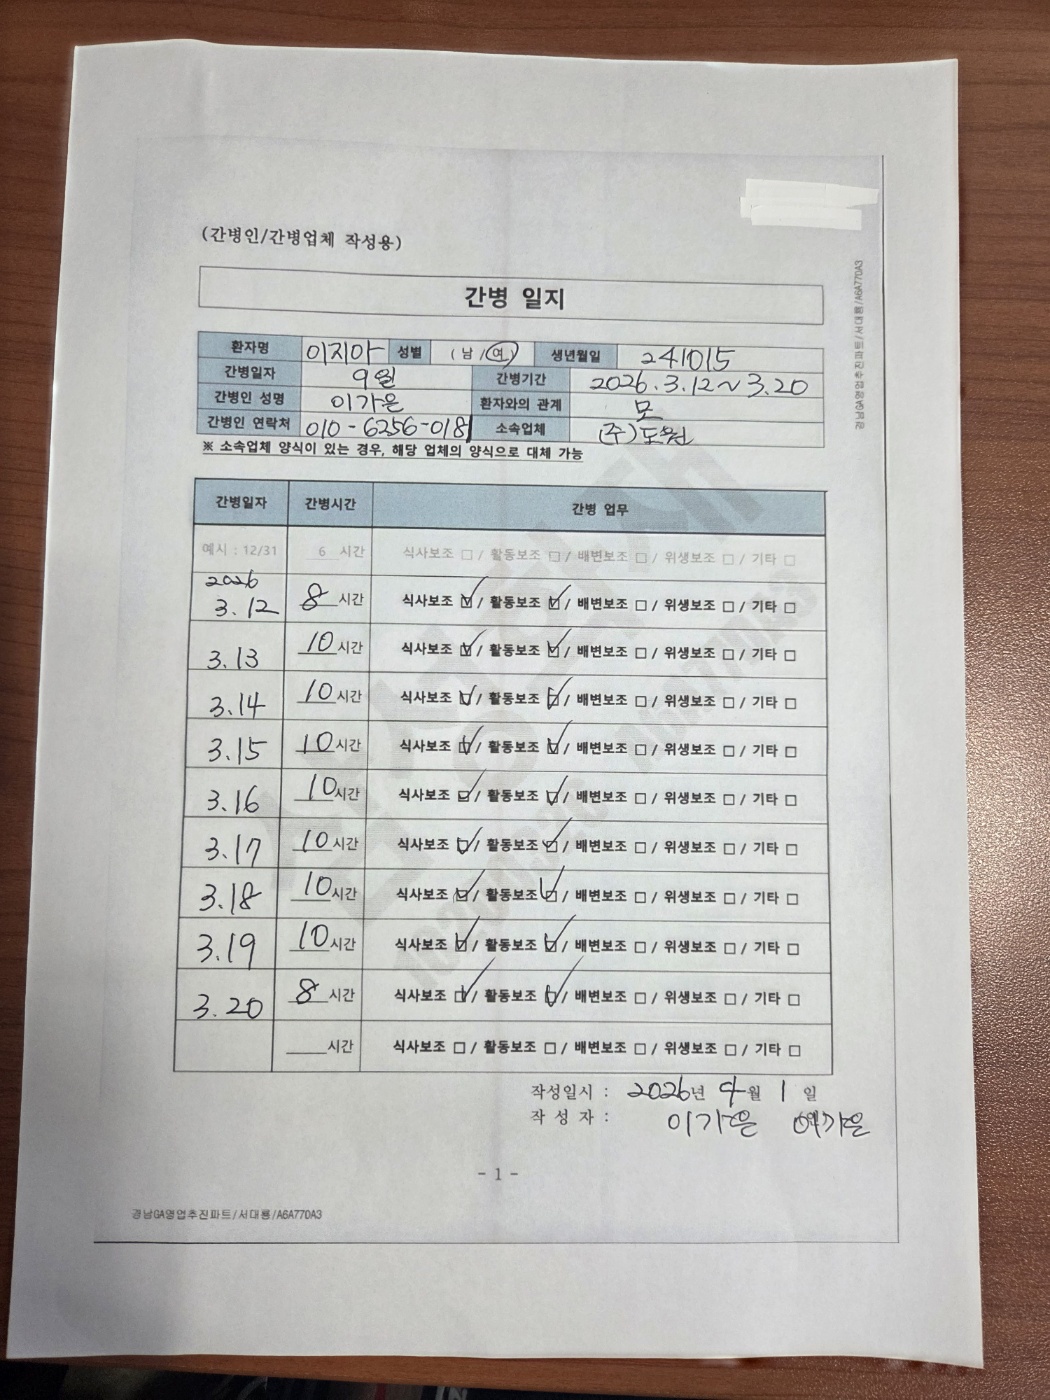 (간병인/간병업체 작성용)
경남GA영업추진파트/서대룡/A6A770A3
간병 일지
환자명 이지아 성별 ( 남 / 여 ) 생년월일 241015
간병일자 9월 간병기간 2026.3.12~3.20
간병인 성명 이가은 환자와의 관계 모
간병인 연락처 010-6256-0181 소속업체 (주)도원
※ 소속업체 양식이 있는 경우, 해당 업체의 양식으로 대체 가능
간병일자 간병시간 간병 업무
예시 : 12/31 6 시간 식사보조 □ / 활동보조 □ / 배변보조 □ / 위생보조 □ / 기타 □
2026
3.12 8 시간 식사보조 ☑ / 활동보조 ☑ / 배변보조 □ / 위생보조 □ / 기타 □
3.13 10 시간 식사보조 ☑ / 활동보조 ☑ / 배변보조 □ / 위생보조 □ / 기타 □
3.14 10 시간 식사보조 ☑ / 활동보조 ☑ / 배변보조 □ / 위생보조 □ / 기타 □
3.15 10 시간 식사보조 ☑ / 활동보조 ☑ / 배변보조 □ / 위생보조 □ / 기타 □
3.16 10 시간 식사보조 ☑ / 활동보조 ☑ / 배변보조 □ / 위생보조 □ / 기타 □
3.17 10 시간 식사보조 ☑ / 활동보조 ☑ / 배변보조 □ / 위생보조 □ / 기타 □
3.18 10 시간 식사보조 ☑ / 활동보조 ☑ / 배변보조 □ / 위생보조 □ / 기타 □
3.19 10 시간 식사보조 ☑ / 활동보조 ☑ / 배변보조 □ / 위생보조 □ / 기타 □
3.20 8 시간 식사보조 ☑ / 활동보조 ☑ / 배변보조 □ / 위생보조 □ / 기타 □
시간 식사보조 □ / 활동보조 □ / 배변보조 □ / 위생보조 □ / 기타 □
작성일시 : 2026년 4월 1 일
작 성 자 : 이가은 이가은
- 1 -
경남GA영업추진파트/서대룡/A6A770A3